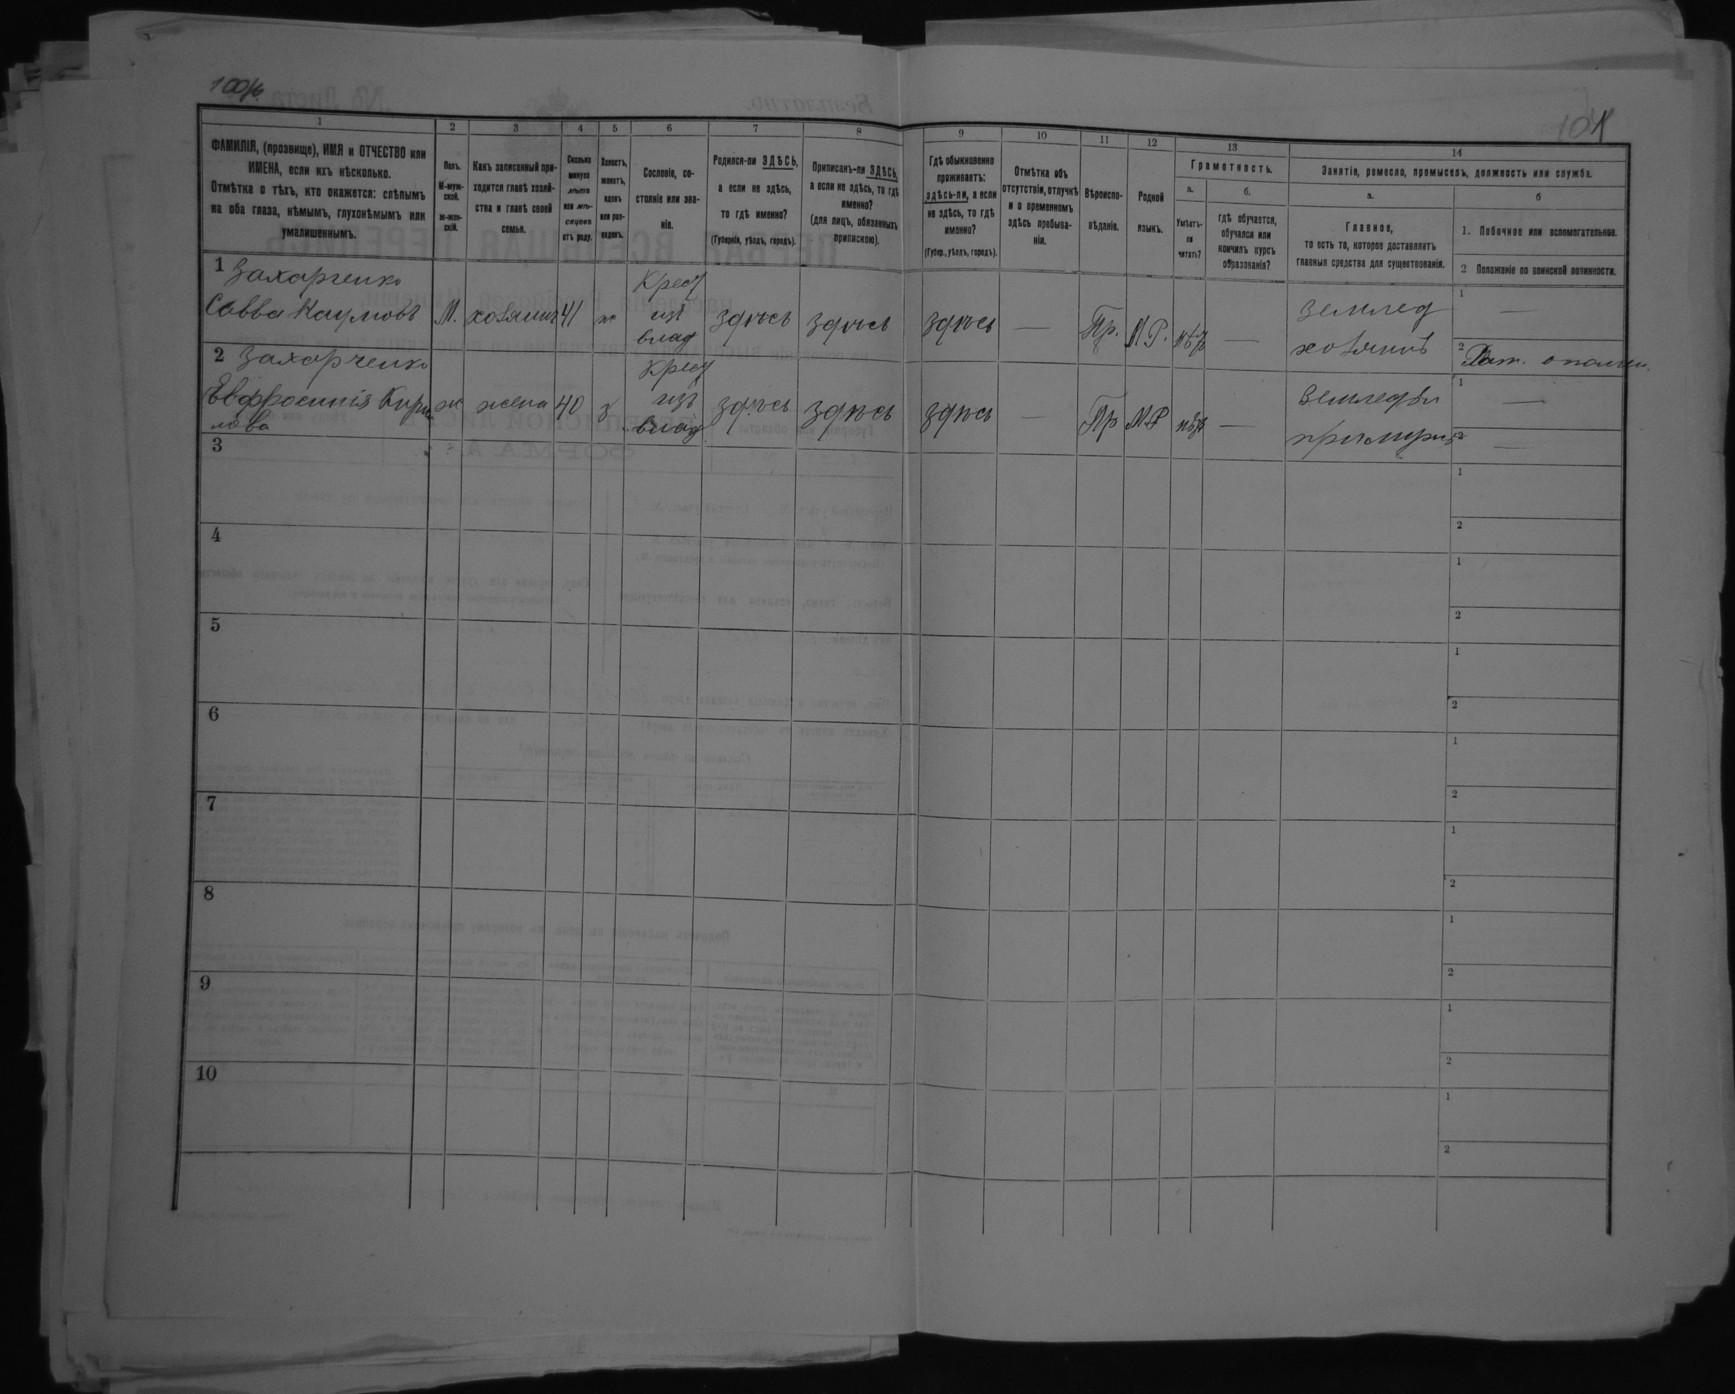 100 об.
101
1
2
3
4
5
6
7
8
9
10
11
12
13
14
ФАМИЛІЯ, (прозвище), ИМЯ и ОТЧЕСТВО или
ИМЕНА, если ихъ нѣсколько.
Отмѣтка о тѣхъ, кто окажется: слѣпымъ
на оба глаза, нѣмымъ, глухонѣмымъ или
умалишеннымъ.
Полъ.
М-муж-
ской.
ж-жен-
скій.
Какъ записанный при-
ходится главѣ хозяй-
ства и главѣ своей
семьи.
Сколько
минуло
лѣтъ
или мѣ-
сяцевъ
отъ роду.
Холостъ,
женатъ,
вдовъ
или раз-
веденъ.
Сословіе, со-
стояніе или зва-
ніе.
Родился-ли ЗДѢСЬ,
а если не здѣсь,
то гдѣ именно?
(Губернія, уѣздъ, городъ).
Приписанъ-ли ЗДѢСЬ,
а если не здѣсь, то гдѣ
именно?
(для лицъ, обязанныхъ
припискою).
Гдѣ обыкновенно
проживаетъ:
здѣсь-ли, а если
не здѣсь, то гдѣ
именно?
(Губер., уѣздъ, городъ).
Отмѣтка объ
отсутствіи, отлучкѣ
и о временномъ
здѣсь пребыва-
ніи.
Вѣроиспо-
вѣданіе.
Родной
языкъ.
Грамотность.
а.
Умѣетъ-
ли
читать?
б.
гдѣ обучается,
обучался или
кончилъ курсъ
образованія?
Занятіе, ремесло, промыселъ, должность или служба.
а.
Главное,
то есть то, которое доставляетъ
главныя средства для существованія.
б
1. Побочное или вспомогательное.
2 Положеніе по воинской повинности.
1 Захарченко
Савва Наумовъ
М.
хозяинъ
41
ж
Крест
изъ
влад
здѣсь
здѣсь
здѣсь
—
Пр.
МР.
нѣтъ
—
землед
хозяинъ
1
—
2 Рат. ополчен.
2 Захарченко
Евфросинія Кири
лова
ж
жена
40
з
Крест
изъ
влад
здѣсь
здѣсь
здѣсь
—
Пр
МР
нѣтъ
—
земледѣл
при мужѣ
1
—
2
—
3
1
2
4
1
2
5
1
2
6
1
2
7
1
2
8
1
2
9
1
2
10
1
2